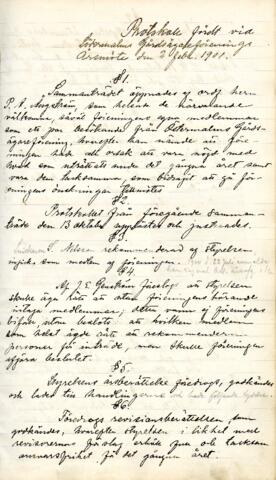 Protokoll fördt vid
Södermalms Gårdsägareförenings
Årsmöte den 2 febr. 1911.
§ 1.
Sammanträdet öppnades af ordf. herr
P. A. Ångström som helsade de närvarande
välkomna, såväl föreningens egna medlemmar
som ett par besökande från Östermalms Gårds-
ägareförening, hvarefter han nämde att före-
ningen hade all orsak att vara nöjd med
hvad som uträttats under det gångna året samt
vara den tacksamma, som bidragit att gå för-
eningens önskningar tillmötes
§ 2.
Protokollet från föregående samman-
träde den 13 oktober upplästes och justerades.
§ 3.
S. Nilsson rekommenderad af styrelsen
ingick som medlem af föreningen.
§ 4.
Af J. E. Genström föreslogs att styrelsen
skulle äga rätt att utan föreningens hörande
intaga medlemmar; detta vann ej föreningens
bifall, utan beslöts att hvilken medlem
som helst ägde rätt att rekommendera
personer till inträde, men skulle föreningen
afgöra beslutet.
§ 5.
Styrelsens årsberättelse föredrogs, godkändes
och lades till handlingarna
§ 6.
Föredrogs revisionsberättelsen, som
godkändes, hvarefter styrelsen i likhet med
revisorernas förslag erhöll full och tacksam
ansvarsfrihet för det gångna året.